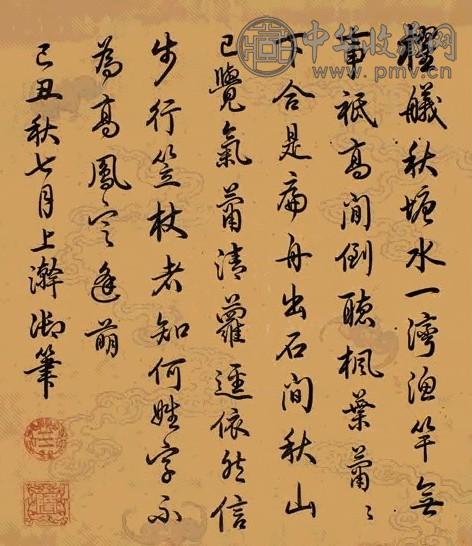 中华收藏网
www.pmv.cn
櫂艤秋塘水一灣漁竿無
事祗高閒倒聽楓葉蕭〻
下合是扁舟出石間秋山
已覺氣蕭清蘿逕依然信
步行笠杖者知何姓字不
為高鳳定逢萌
己丑秋七月上澣御筆